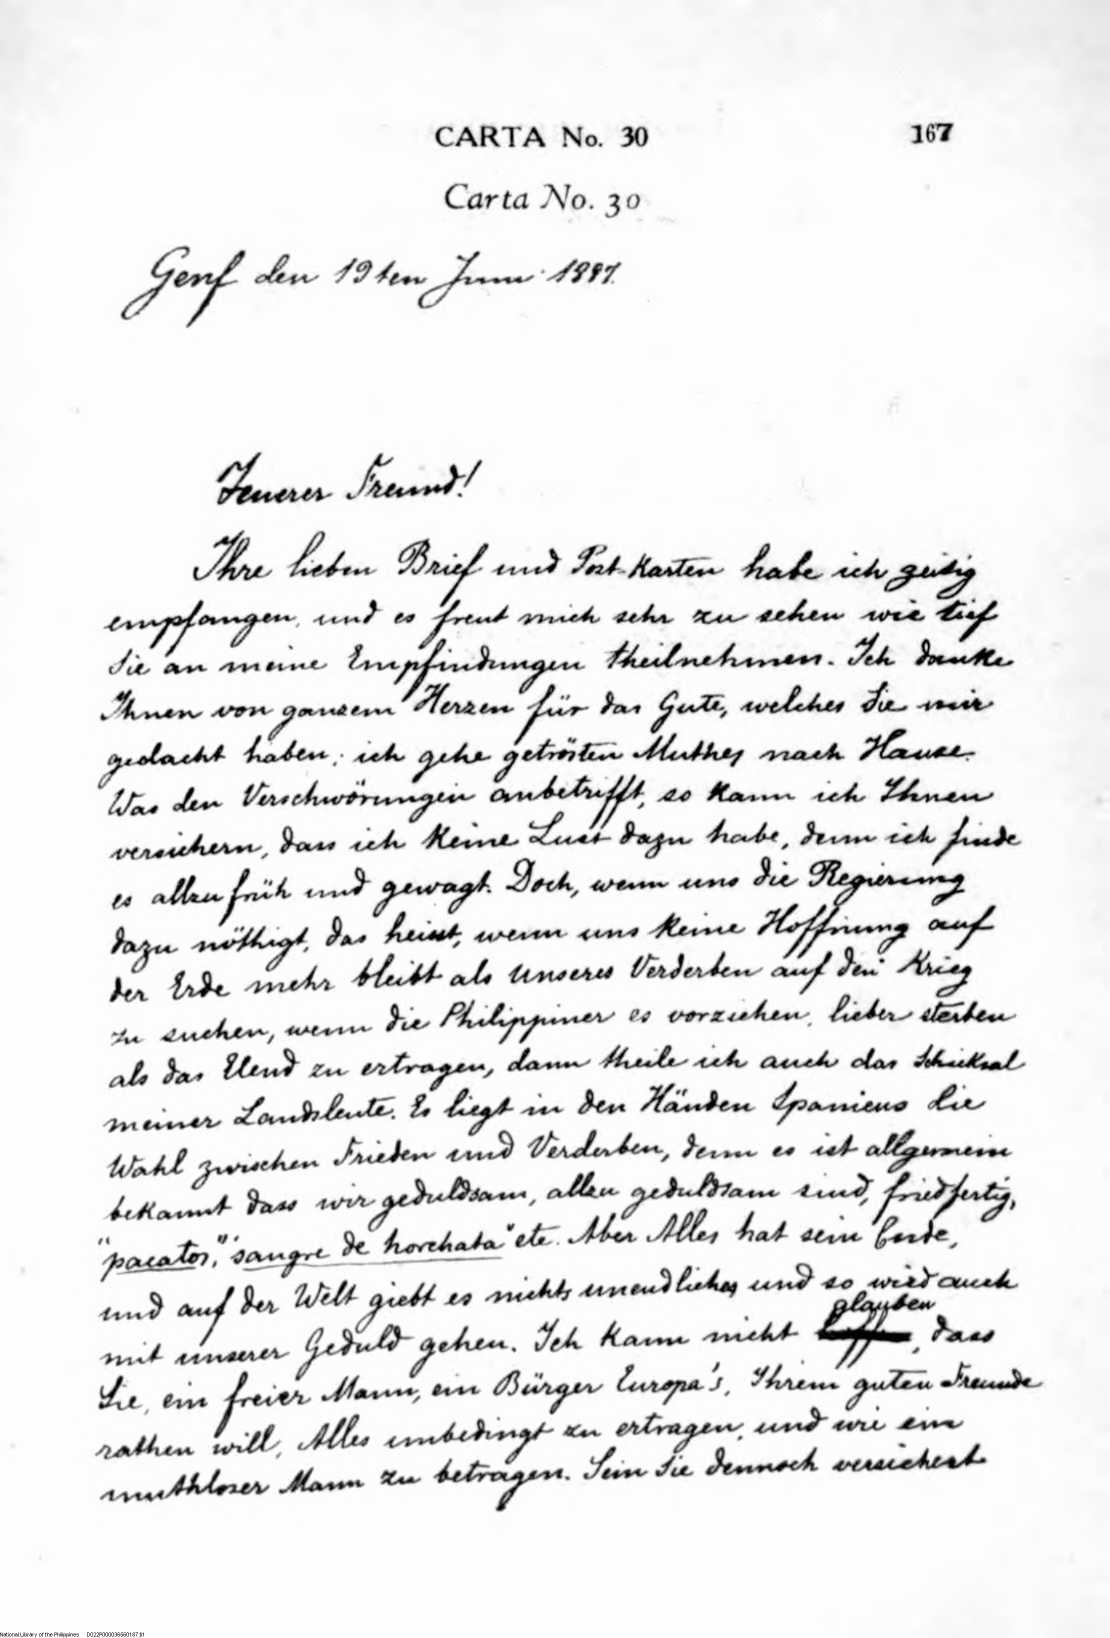 CARTA No. 30
167
Carta No. 30
Genf den 19ten Juni 1887.
Teuerer Freund!
Ihre lieben Brief und Post-Karten habe ich zeitig
empfangen, und es freut mich sehr zu sehen wie tief
Sie an meine Empfindungen theilnehmen. Ich danke
Ihnen von ganzem Herzen für das Gute, welches Sie mir
gedacht haben; ich gehe getrösten Muthes nach Hause.
Was den Verschwörungen anbetrifft, so kann ich Ihnen
versichern, dass ich keine Lust dazu habe, denn ich finde
es allzu früh und gewagt. Doch, wenn uns die Regierung
dazu nöthigt, das heisst, wenn uns keine Hoffnung auf
der Erde mehr bleibt als unseres Verderben auf den Krieg
zu suchen, wenn die Philippiner es vorziehen, lieber sterben
als das Elend zu ertragen, dann theile ich auch das Schicksal
meiner Landsleute. Es liegt in den Händen Spaniens die
Wahl zwischen Frieden und Verderben, denn es ist allgemein
bekannt dass wir geduldsam, allzu geduldsam sind, friedfertig,
"pacatos," "sangre de horchata" etc. Aber Alles hat sein Ende,
und auf der Welt giebt es nichts unendliches und so wird auch
mit unserer Geduld gehen. Ich kann nicht glauben, dass
Sie, ein freier Mann, ein Bürger Europa's, Ihrem guten Freunde
rathen will, Alles unbedingt zu ertragen, und wie ein
muthloser Mann zu betragen. Sein Sie dennoch versichert
National Library of the Philippines